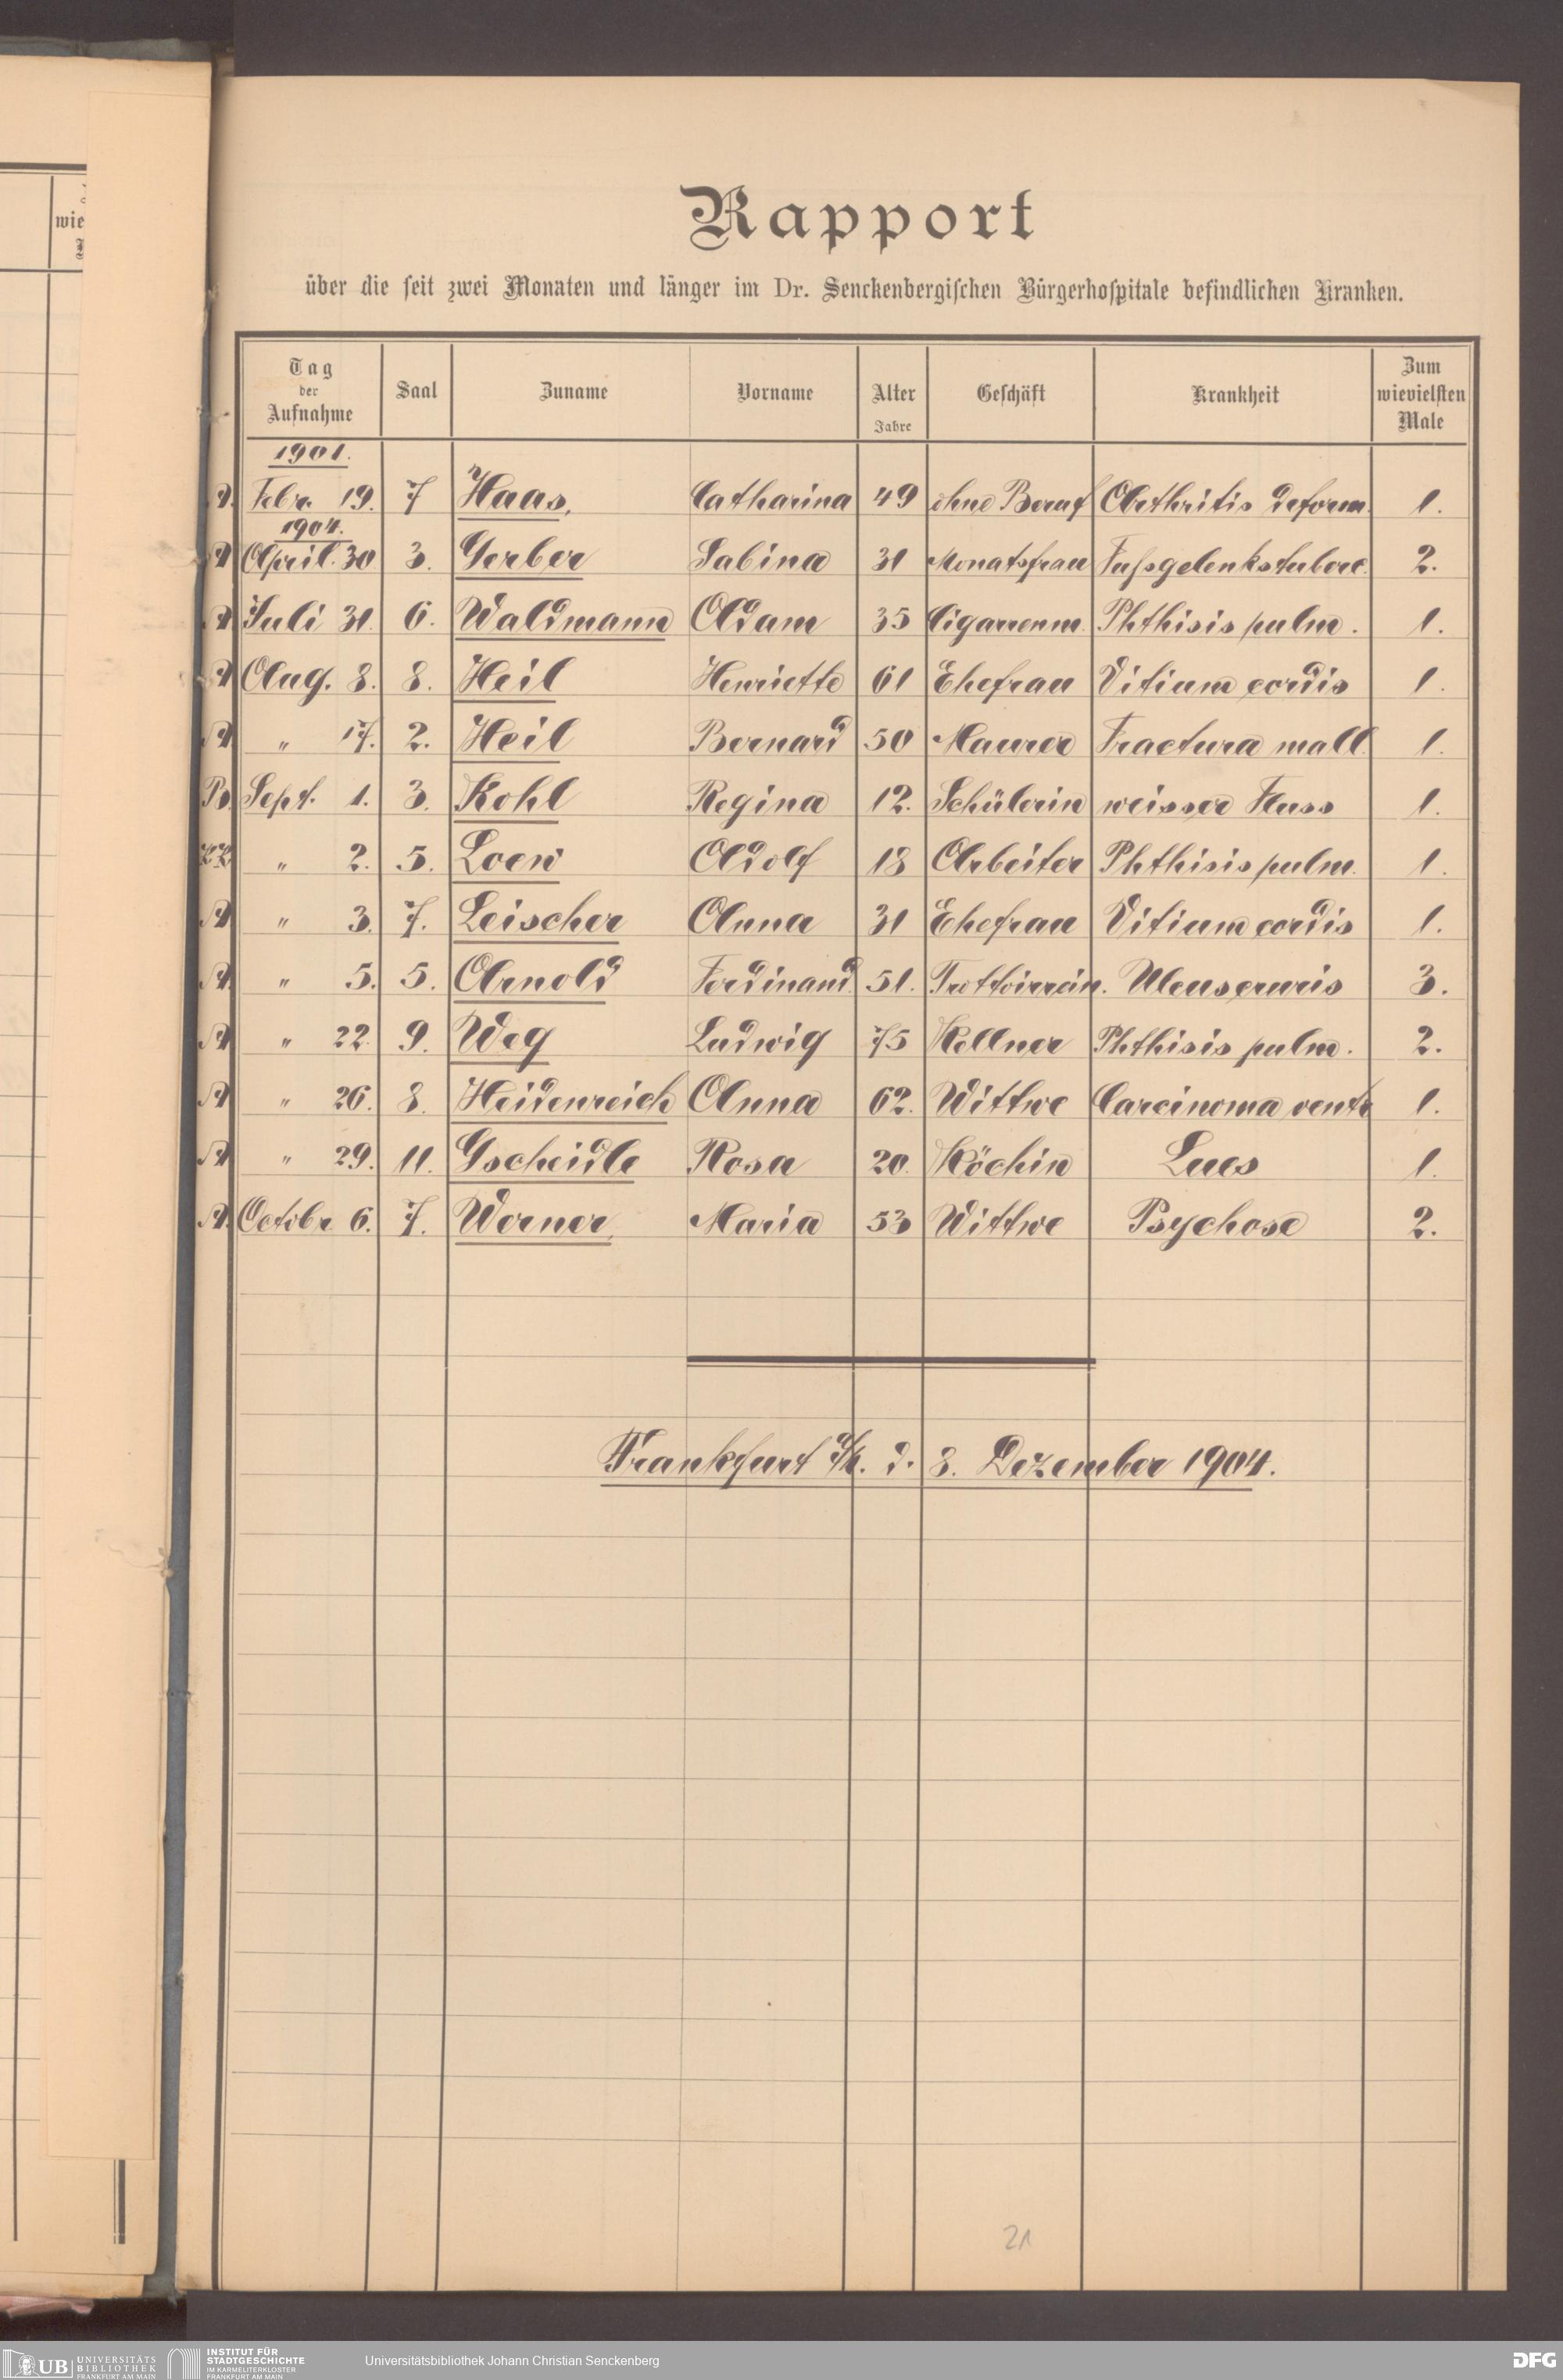 wie
Rapport
über die seit zwei Monaten und länger im Dr. Senckenbergischen Bürgerhospitale befindlichen Kranken.
Tag der Aufnahme Saal Zuname Vorname Alter Jahre Geschäft Krankheit Zum wievielsten Male
1901.
A. Febr. 19. 7 Haas, Catharina 49 ohne Beruf Arthritis deform. 1.
1904.
A April. 30 3. Gerber Sabina 31 Monatsfrau Fussgelenkstuberc. 2.
A Juli 31. 6. Waldmann Adam 35 Cigarrenm. Phthisis pulm. 1.
A Aug. 8. 8. Heil Henriette 61 Ehefrau Vitium cordis 1.
A " 17. 2. Heil Bernard 50 Maurer Fractura mall. 1.
B. Sept. 1. 3. Kohl Regina 12. Schülerin weisser Fluss 1.
" 2. 5. Loew Adolf 18 Arbeiter Phthisis pulm. 1.
A " 3. 7. Leischer Anna 31 Ehefrau Vitium cordis 1.
A. " 5. 5. Arnold Ferdinand 51. Trottoirrein. Ulcus cruris 3.
A " 22. 9. Weg Ludwig 75 Kellner Phthisis pulm. 2.
A " 26. 8. Heidenreich Anna 62. Wittwe Carcinoma ventr 1.
A " 29. 11. Gscheidle Rosa 20. Köchin Lues 1.
A. Octobr. 6. 7. Werner, Maria 53 Wittwe Psychose 2.
Frankfurt a/M. d. 8. Dezember 1904.
21
UB UNIVERSITÄTS BIBLIOTHEK FRANKFURT AM MAIN
INSTITUT FÜR STADTGESCHICHTE IM KARMELITERKLOSTER FRANKFURT AM MAIN
Universitätsbibliothek Johann Christian Senckenberg
DFG